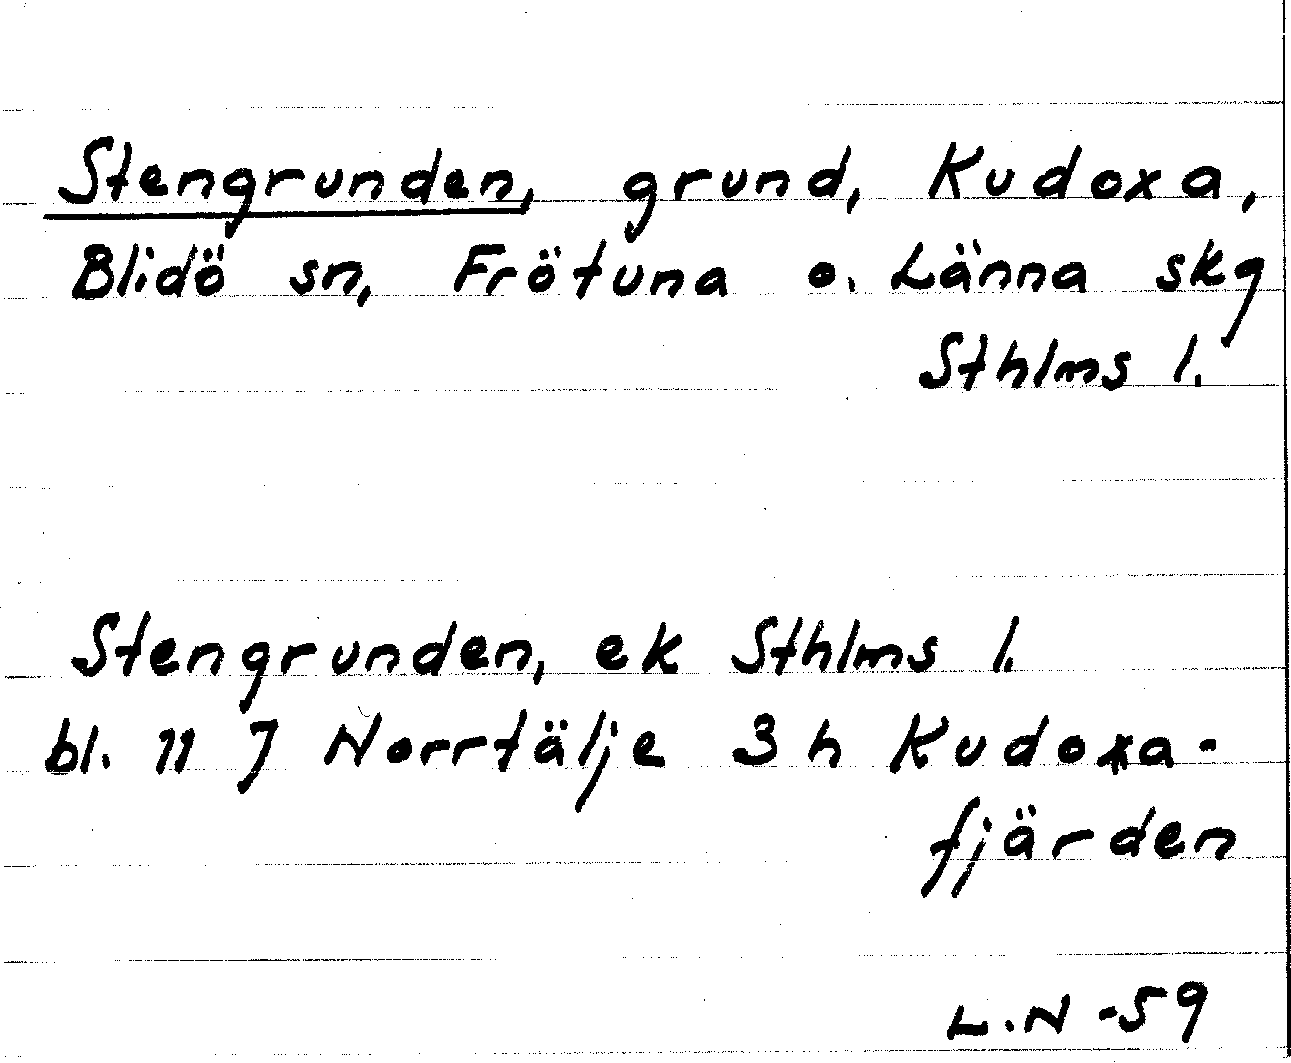 Stengrunden, grund, Kudoxa,
Blidö sn, Frötuna o. Länna skg
Sthlms l.
Stengrunden, ek Sthlms l.
bl. 11 J Norrtälje 3 h Kudoxa-
fjärden
L.N -59